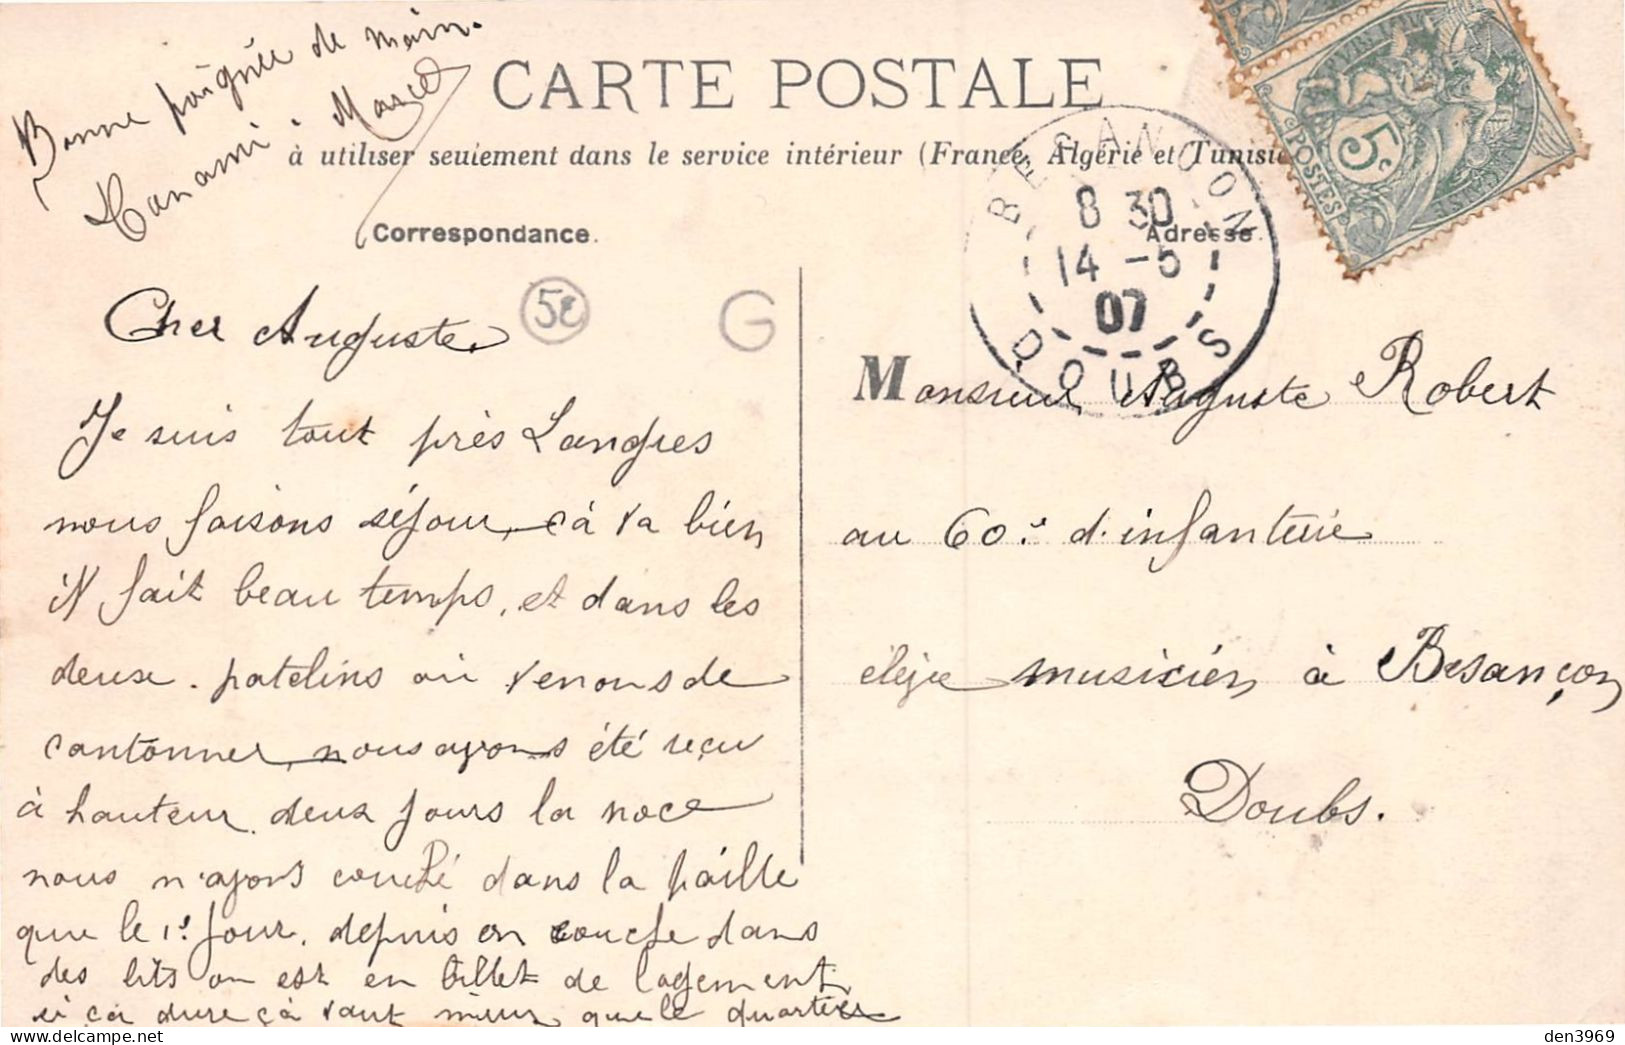 Bonne poignée de main.
ton ami. Marcel
CARTE POSTALE
à utiliser seulement dans le service intérieur (France, Algérie et Tunisie
Correspondance.
Adresse.
BESANCON
8 30
14 -5
07
DOUBS
5c
POSTES
5e
G
Cher Auguste,
Je suis tout près Langres
nous faisons séjour, cà va bien
il fait beau temps, et dans les
deux patelins où venons de
cantonner, nous ayons été reçu
à hauteur deux jours la noce
nous n'ayons couché dans la paille
que le 1er jour, depuis on couche dans
des lits on est en billet de logement
si ça dure çà vaut mieux que le quartier
Monsieur Auguste Robert
au 60e d'infanterie
élève musicien à Besançon
Doubs.
den3969